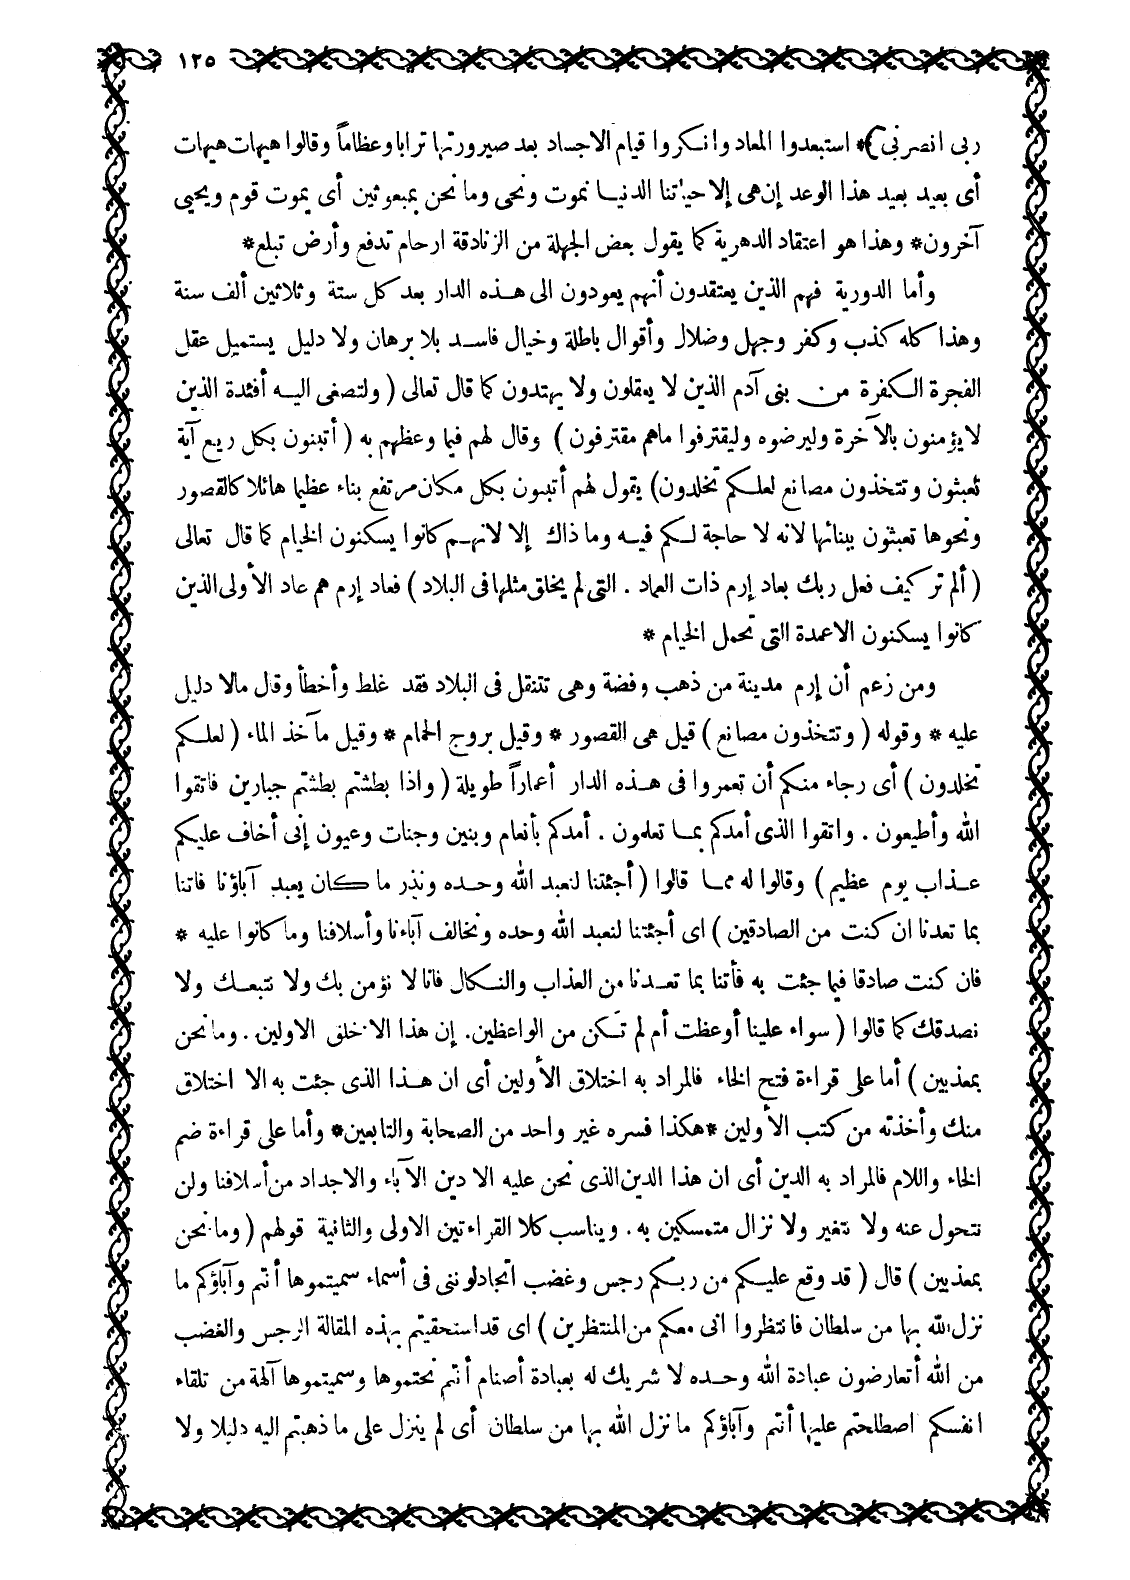 ١٢٥
ربى انصرنى )* استبعدوا المعاد وانكروا قيام الاجساد بعد صيرورتها ترابا وعظاماً وقالوا هيهات هيهات
أى بعيد بعيد هذا الوعد إن هى إلا حياتنا الدنيا نموت ونحى وما نحن بمبعوثين أى يموت قوم ويحيى
آخرون* وهذا هو اعتقاد الدهرية كما يقول بعض الجهلة من الزنادقة ارحام تدفع وأرض تبلع*
وأما الدورية فهم الذين يعتقدون أنهم يعودون الى هذه الدار بعد كل ستة وثلاثين ألف سنة
وهذا كله كذب وكفر وجهل وضلال وأقوال باطلة وخيال فاسد بلا برهان ولا دليل يستميل عقل
الفجرة الكفرة من بنى آدم الذين لا يعقلون ولا يهتدون كما قال تعالى ( ولتصغى اليه أفئدة الذين
لا يؤمنون بالآخرة وليرضوه وليقترفوا ماهم مقترفون ) وقال لهم فيما وعظهم به ( أتبنون بكل ريع آية
تعبثون وتتخذون مصانع لعلكم تخلدون) يقول لهم أتبنون بكل مكان مرتفع بناء عظيما هائلا كالقصور
ونحوها تعبثون ببنائها لانه لا حاجة لكم فيه وما ذاك إلا لانهم كانوا يسكنون الخيام كما قال تعالى
( ألم تر كيف فعل ربك بعاد إرم ذات العماد . التى لم يخلق مثلها فى البلاد ) فعاد إرم هم عاد الأولى الذين
كانوا يسكنون الاعمدة التى تحمل الخيام *
ومن زعم أن إرم مدينة من ذهب وفضة وهى تتنقل فى البلاد فقد غلط وأخطأ وقال مالا دليل
عليه * وقوله ( وتتخذون مصانع ) قيل هى القصور * وقيل بروج الحمام * وقيل مآخذ الماء ( لعلكم
تخلدون ) أى رجاء منكم أن تعمروا فى هذه الدار أعماراً طويلة ( واذا بطشتم بطشتم جبارين فاتقوا
الله وأطيعون . واتقوا الذى أمدكم بما تعلمون . أمدكم بأنعام وبنين وجنات وعيون إنى أخاف عليكم
عذاب يوم عظيم ) وقالوا له مما قالوا ( أجئتنا لنعبد الله وحده ونذر ما كان يعبد آباؤنا فاتنا
بما تعدنا ان كنت من الصادقين ) اى أجئتنا لنعبد الله وحده ونخالف آباءنا وأسلافنا وما كانوا عليه *
فان كنت صادقا فيما جئت به فأتنا بما تعدنا من العذاب والنكال فانا لا نؤمن بك ولا نتبعك ولا
نصدقك كما قالوا ( سواء علينا أوعظت أم لم تكن من الواعظين. إن هذا الا خلق الاولين . وما نحن
بمعذبين ) أما على قراءة فتح الخاء فالمراد به اختلاق الأولين أى ان هذا الذى جئت به الا اختلاق
منك وأخذته من كتب الأولين *هكذا فسره غير واحد من الصحابة والتابعين* وأما على قراءة ضم
الخاء واللام فالمراد به الدين أى ان هذا الدين الذى نحن عليه الا دين الآباء والاجداد من أسلافنا ولن
نتحول عنه ولا نتغير ولا نزال متمسكين به . ويناسب كلا القراءتين الاولى والثانية قولهم ( وما نحن
بمعذبين ) قال ( قد وقع عليكم من ربكم رجس وغضب اتجادلوننى فى أسماء سميتموها أنتم وآباؤكم ما
نزل الله بها من سلطان فانتظروا انى معكم من المنتظرين ) اى قد استحقيتم بهذه المقالة الرجس والغضب
من الله أتعارضون عبادة الله وحده لا شريك له بعبادة أصنام أنتم نحتموها وسميتموها آلهة من تلقاء
انفسكم اصطلحتم عليها أنتم وآباؤكم ما نزل الله بها من سلطان أى لم ينزل على ما ذهبتم اليه دليلا ولا